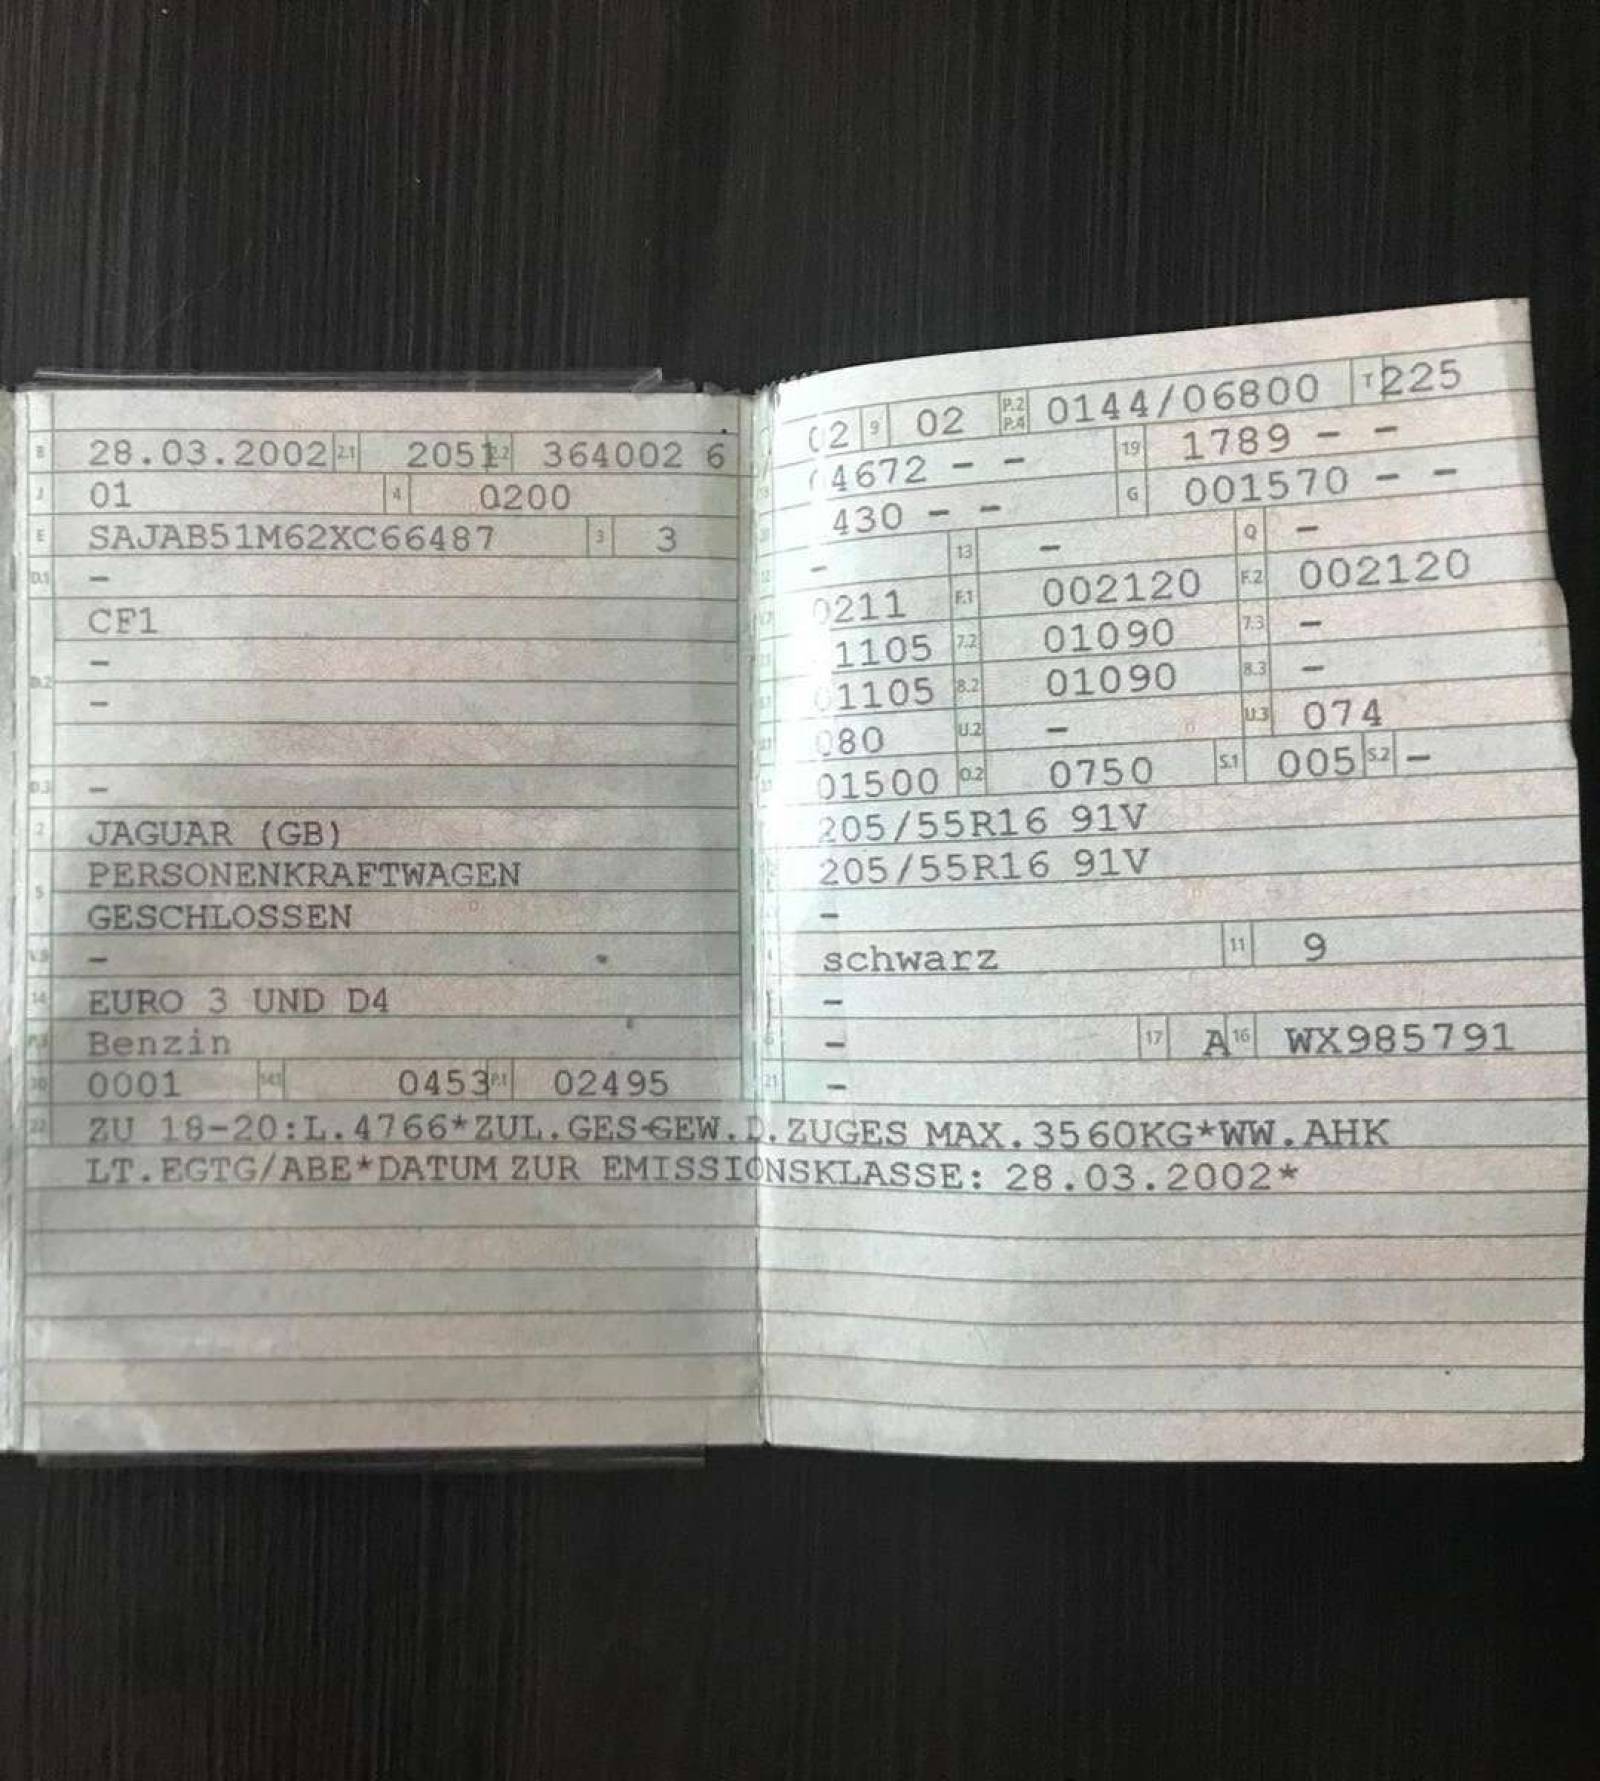 B 28.03.2002 2.1 2051 2.2 364002 6
J 01 4 0200
E SAJAB51M62XC66487 3 3
D.1 –
CF1
–
D.2
–
D.3 –
2 JAGUAR (GB)
PERSONENKRAFTWAGEN
5
GESCHLOSSEN
V.9 –
14 EURO 3 UND D4
P.3 Benzin
10 0001 14.1 0453 P.1 02495
22 ZU 18-20:L.4766*ZUL.GES-GEW.D.ZUGES MAX.3560KG*WW.AHK
LT.EGTG/ABE*DATUM ZUR EMISSIONSKLASSE: 28.03.2002*
02 9 02 P.2 P.4 0144/06800 T 225
4672 – – 19 1789 – –
430 – – G 001570 – –
– 13 – Q –
0211 F.1 002120 F.2 002120
1105 7.2 01090 7.3 –
01105 8.2 01090 8.3 –
080 U.2 – U.3 074
01500 O.2 0750 S.1 005 S.2 –
205/55R16 91V
205/55R16 91V
–
schwarz 11 9
–
– 17 A 16 WX985791
21 –